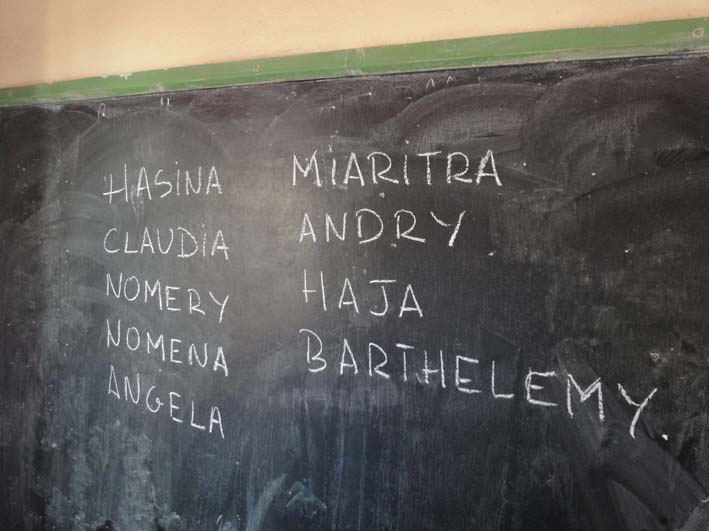 HASINA
CLAUDIA
NOMERY
NOMENA
ANGELA
MIARITRA
ANDRY
HAJA
BARTHELEMY.